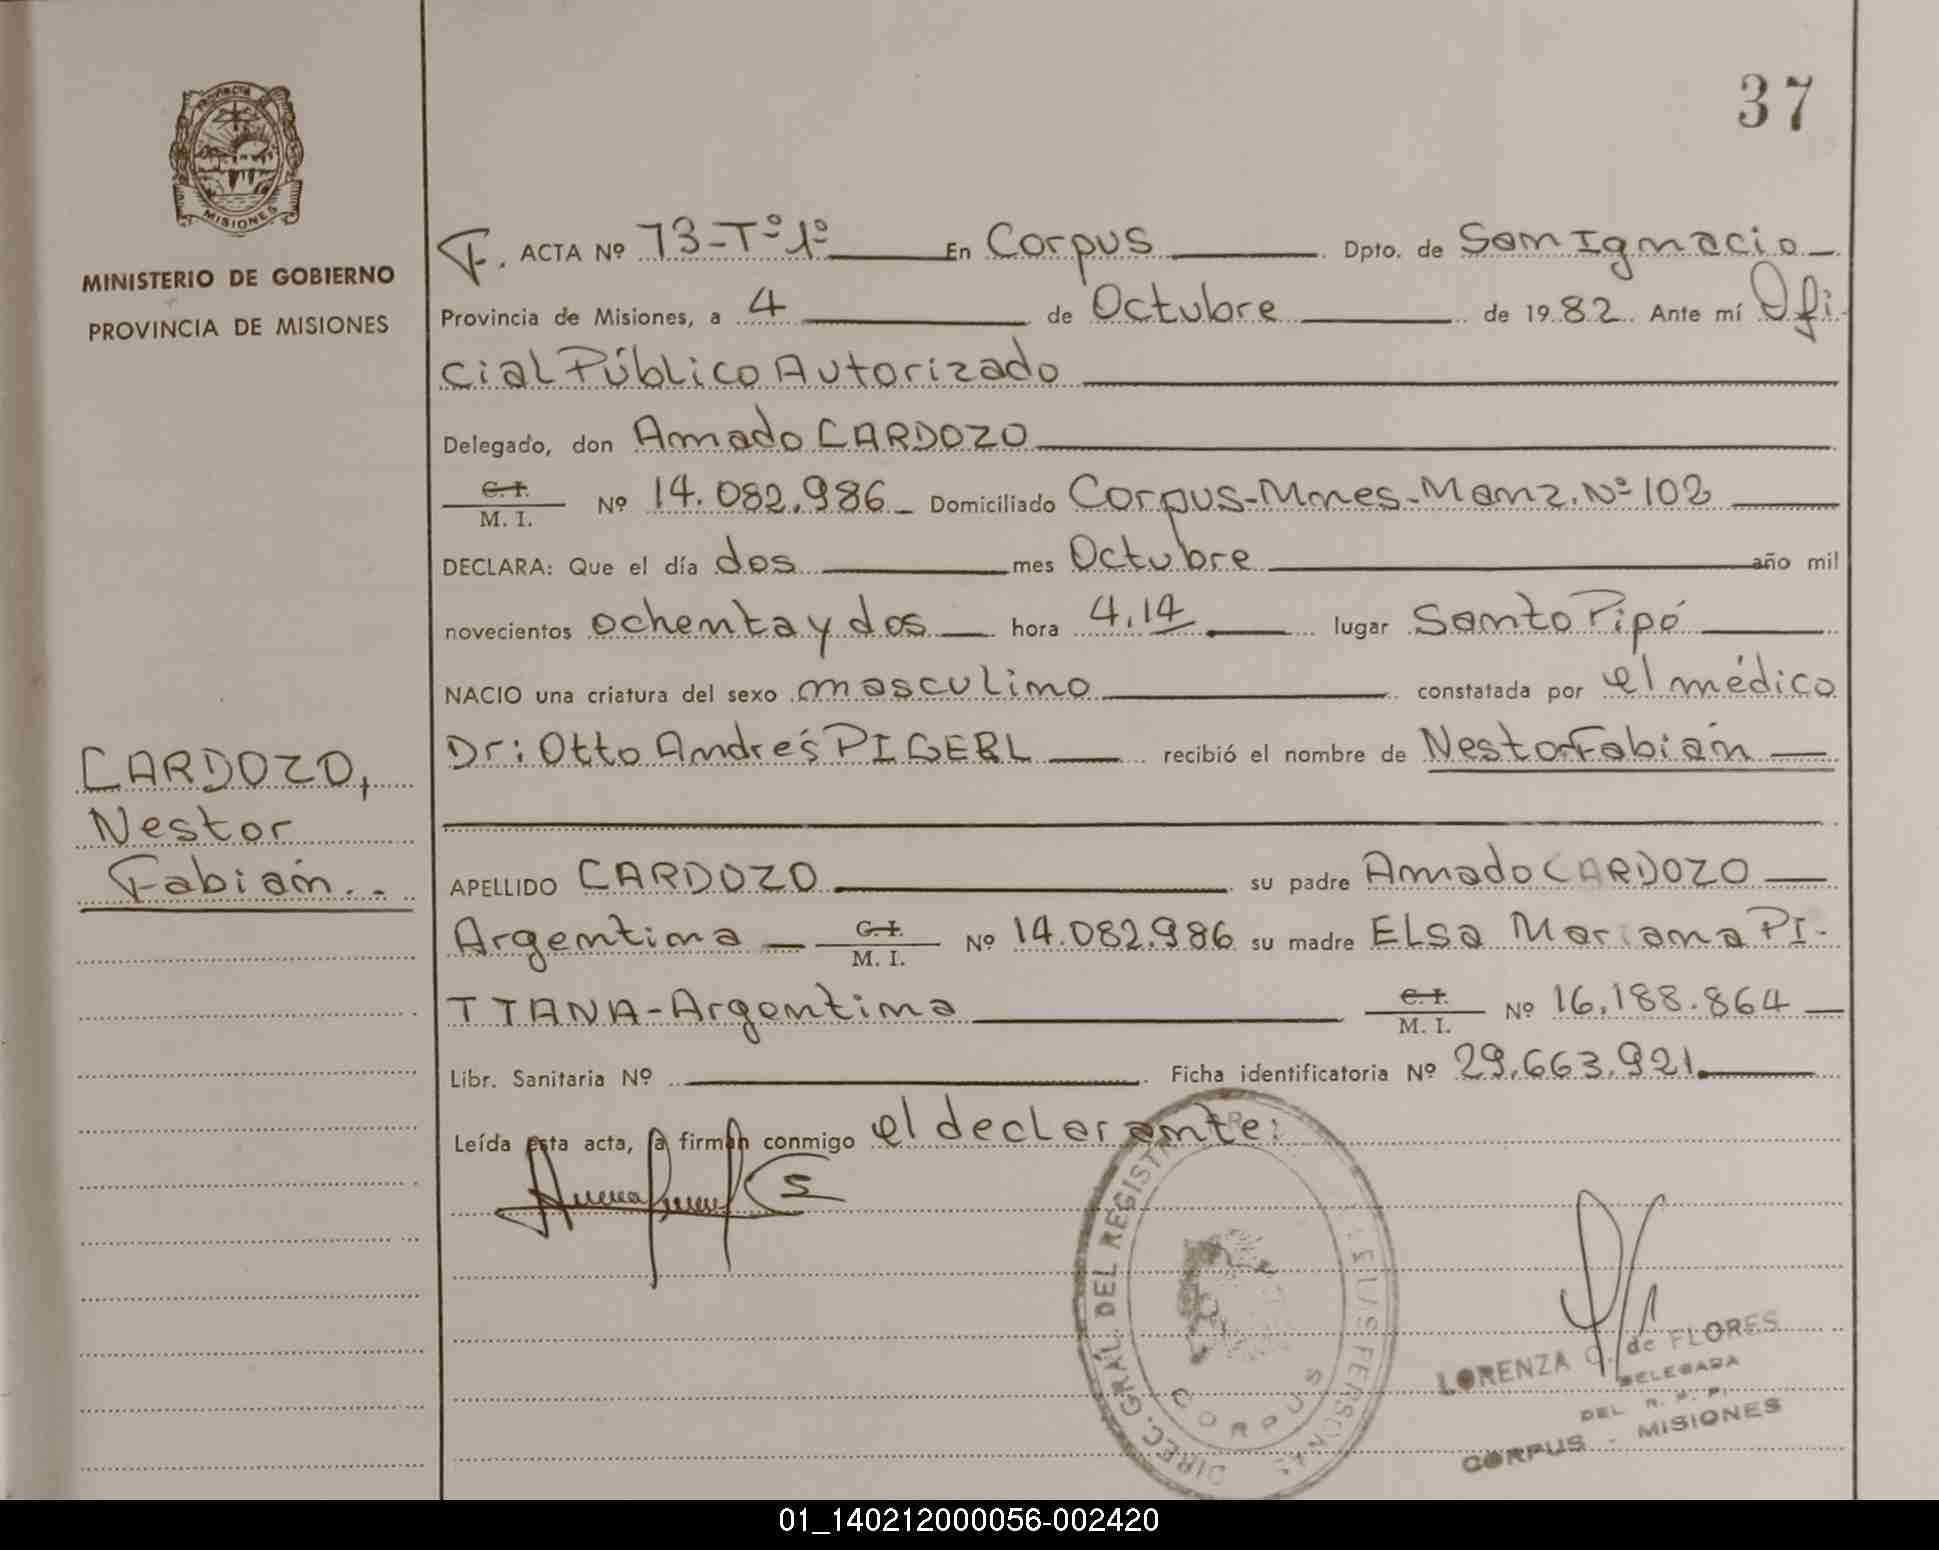 37
Provincia
MISIONES
MINISTERIO DE GOBIERNO
PROVINCIA DE MISIONES
F. ACTA Nº 73-Tº1º En Corpus Dpto. de San Ignacio
Provincia de Misiones, a 4 de Octubre de 1982 Ante mí Ofi-
cial Público Autorizado
Delegado, don Amado CARDOZO
C. I.
M. I. Nº 14.082.986 Domiciliado Corpus-Mnes-Manz. Nº 102
DECLARA: Que el día dos mes Octubre año mil
novecientos ochenta y dos hora 4,14 lugar Santo Pipó
NACIO una criatura del sexo masculino constatada por el médico
Dr: Otto Andrés PIGERL recibió el nombre de Nestor Fabián
CARDOZO,
Nestor
Fabián..
APELLIDO CARDOZO su padre Amado CARDOZO
Argentina C. I. M. I. Nº 14.082.986 su madre ELsa Mariana PI-
TTANA-Argentina C. I. M. I. Nº 16.188.864
Libr. Sanitaria Nº Ficha identificatoria Nº 29.663.921.
Leída esta acta, la firman conmigo el declarante:
DIREC. GRAL. DEL REGISTR PERSONAS
CORPUS
LORENZA de FLORES
DELEGADA
DEL R. P.
CORPUS - MISIONES
01_140212000056-002420